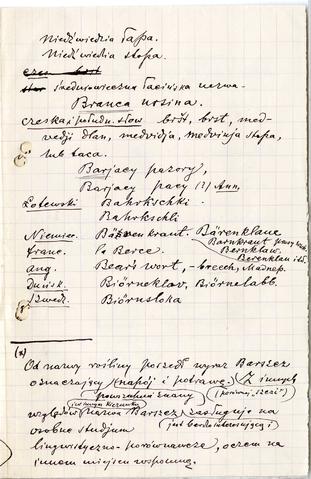 Niedźwiedzia łapa.
Niedźwiedzia stopa.
średniowieczna łacińska nazwa
Branca ursina.
czeska i połudn. słow bršt, brst, med-
vedji dlan, medvidja, medvinja stapa,
lub taca.
Barjacy pazory,
Barjacy pacy (?) Ann.
Łotewski Bahrkschki
Bahrkschli
Niemiec. Bärenkraut. Bärenklaue
Barnkraut
Bernklaw.
Berenklau itd.
franc. la Berce.
ang. Bear's wort, - breech, Madnep.
Duńsk. Björneklov, Björnelabb.
Szwedz. Björnsloka
(x)
Od nazwy rośliny poszedł wyraz Barszcz
oznaczający napój i potrawę. Z innych
powszechnie znany (porównaj „szczi")
względów nazwa Barszcz zasługuje na
osobne studjum jest bardzo interesującą i
lingwistyczno-porównawcze, o czem na
innem miejscu wspomnę.